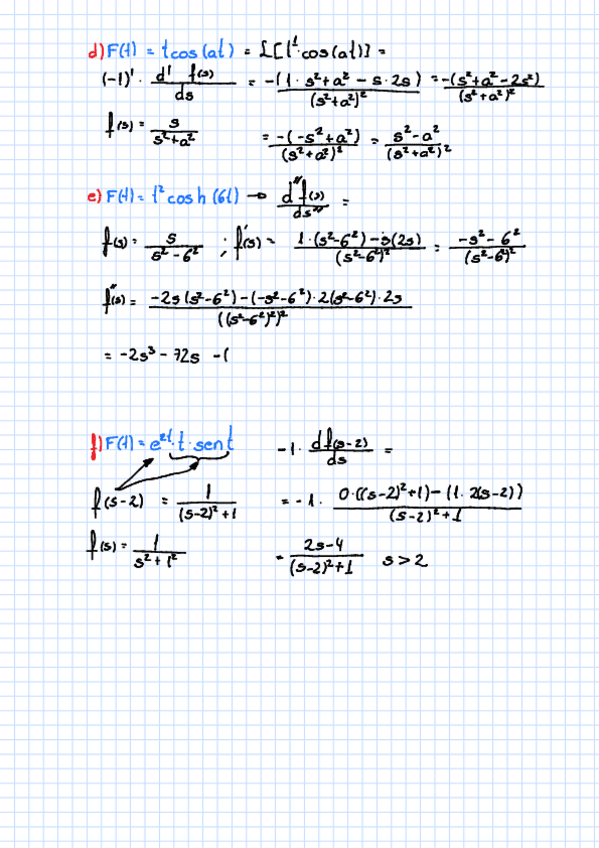 d) F(t) = t cos(at) = £[t¹·cos(at)] =
(-1)¹ · d¹ f(s)/ds = -(1·s²+a² - s·2s)/(s²+a²)² = -(s²+a²-2s²)/(s²+a²)²
f(s) = s/(s²+a²) = -(-s²+a²)/(s²+a²)² = (s²-a²)/(s²+a²)²
e) F(t) = t² cosh(6t) → d''f(s)/ds'' =
f(s) = s/(s²-6²) ; f'(s) = (1·(s²-6²)-s(2s))/(s²-6²)² = (-s²-6²)/(s²-6²)²
f''(s) = (-2s(s²-6²)-(-s²-6²)·2(s²-6²)·2s)/((s²-6²)²)²
= -2s³ - 72s -(
f) F(t) = e²ᵗ·t·sen t -1· df(s-2)/ds =
f(s-2) = 1/((s-2)²+1) = -1· (0·((s-2)²+1)-(1·2(s-2)))/((s-2)²+1)
f(s) = 1/(s²+1²) = (2s-4)/((s-2)²+1) s>2